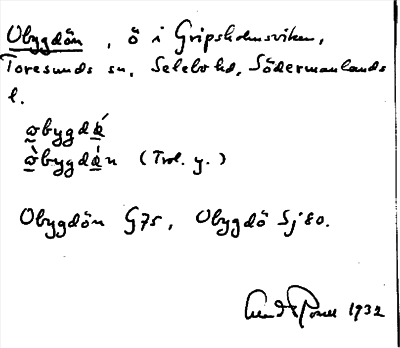 Obygdön, ö i Gripsholmsviken,
Toresunds sn, Selebo hd, Södermanlands
l.
obygdǿ
òbygdǿn (Trol. y.)
Obygdön G75, Obygdö Sj 80.
1932